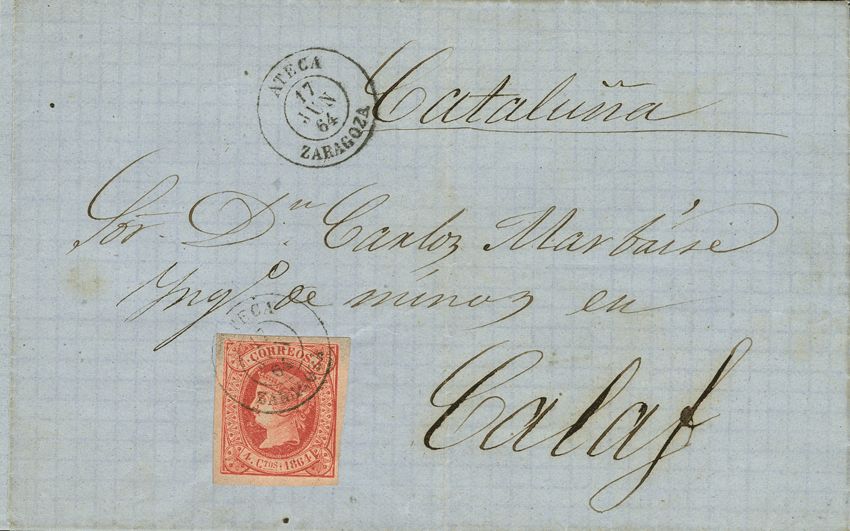 ATECA
17
JUN
64
ZARAGOZA
Cataluña
Sor. Dn. Carlos Marbaise
Yngo. de minas en
ATECA
64
CORREOS
4 CTOS 1864
Calaf